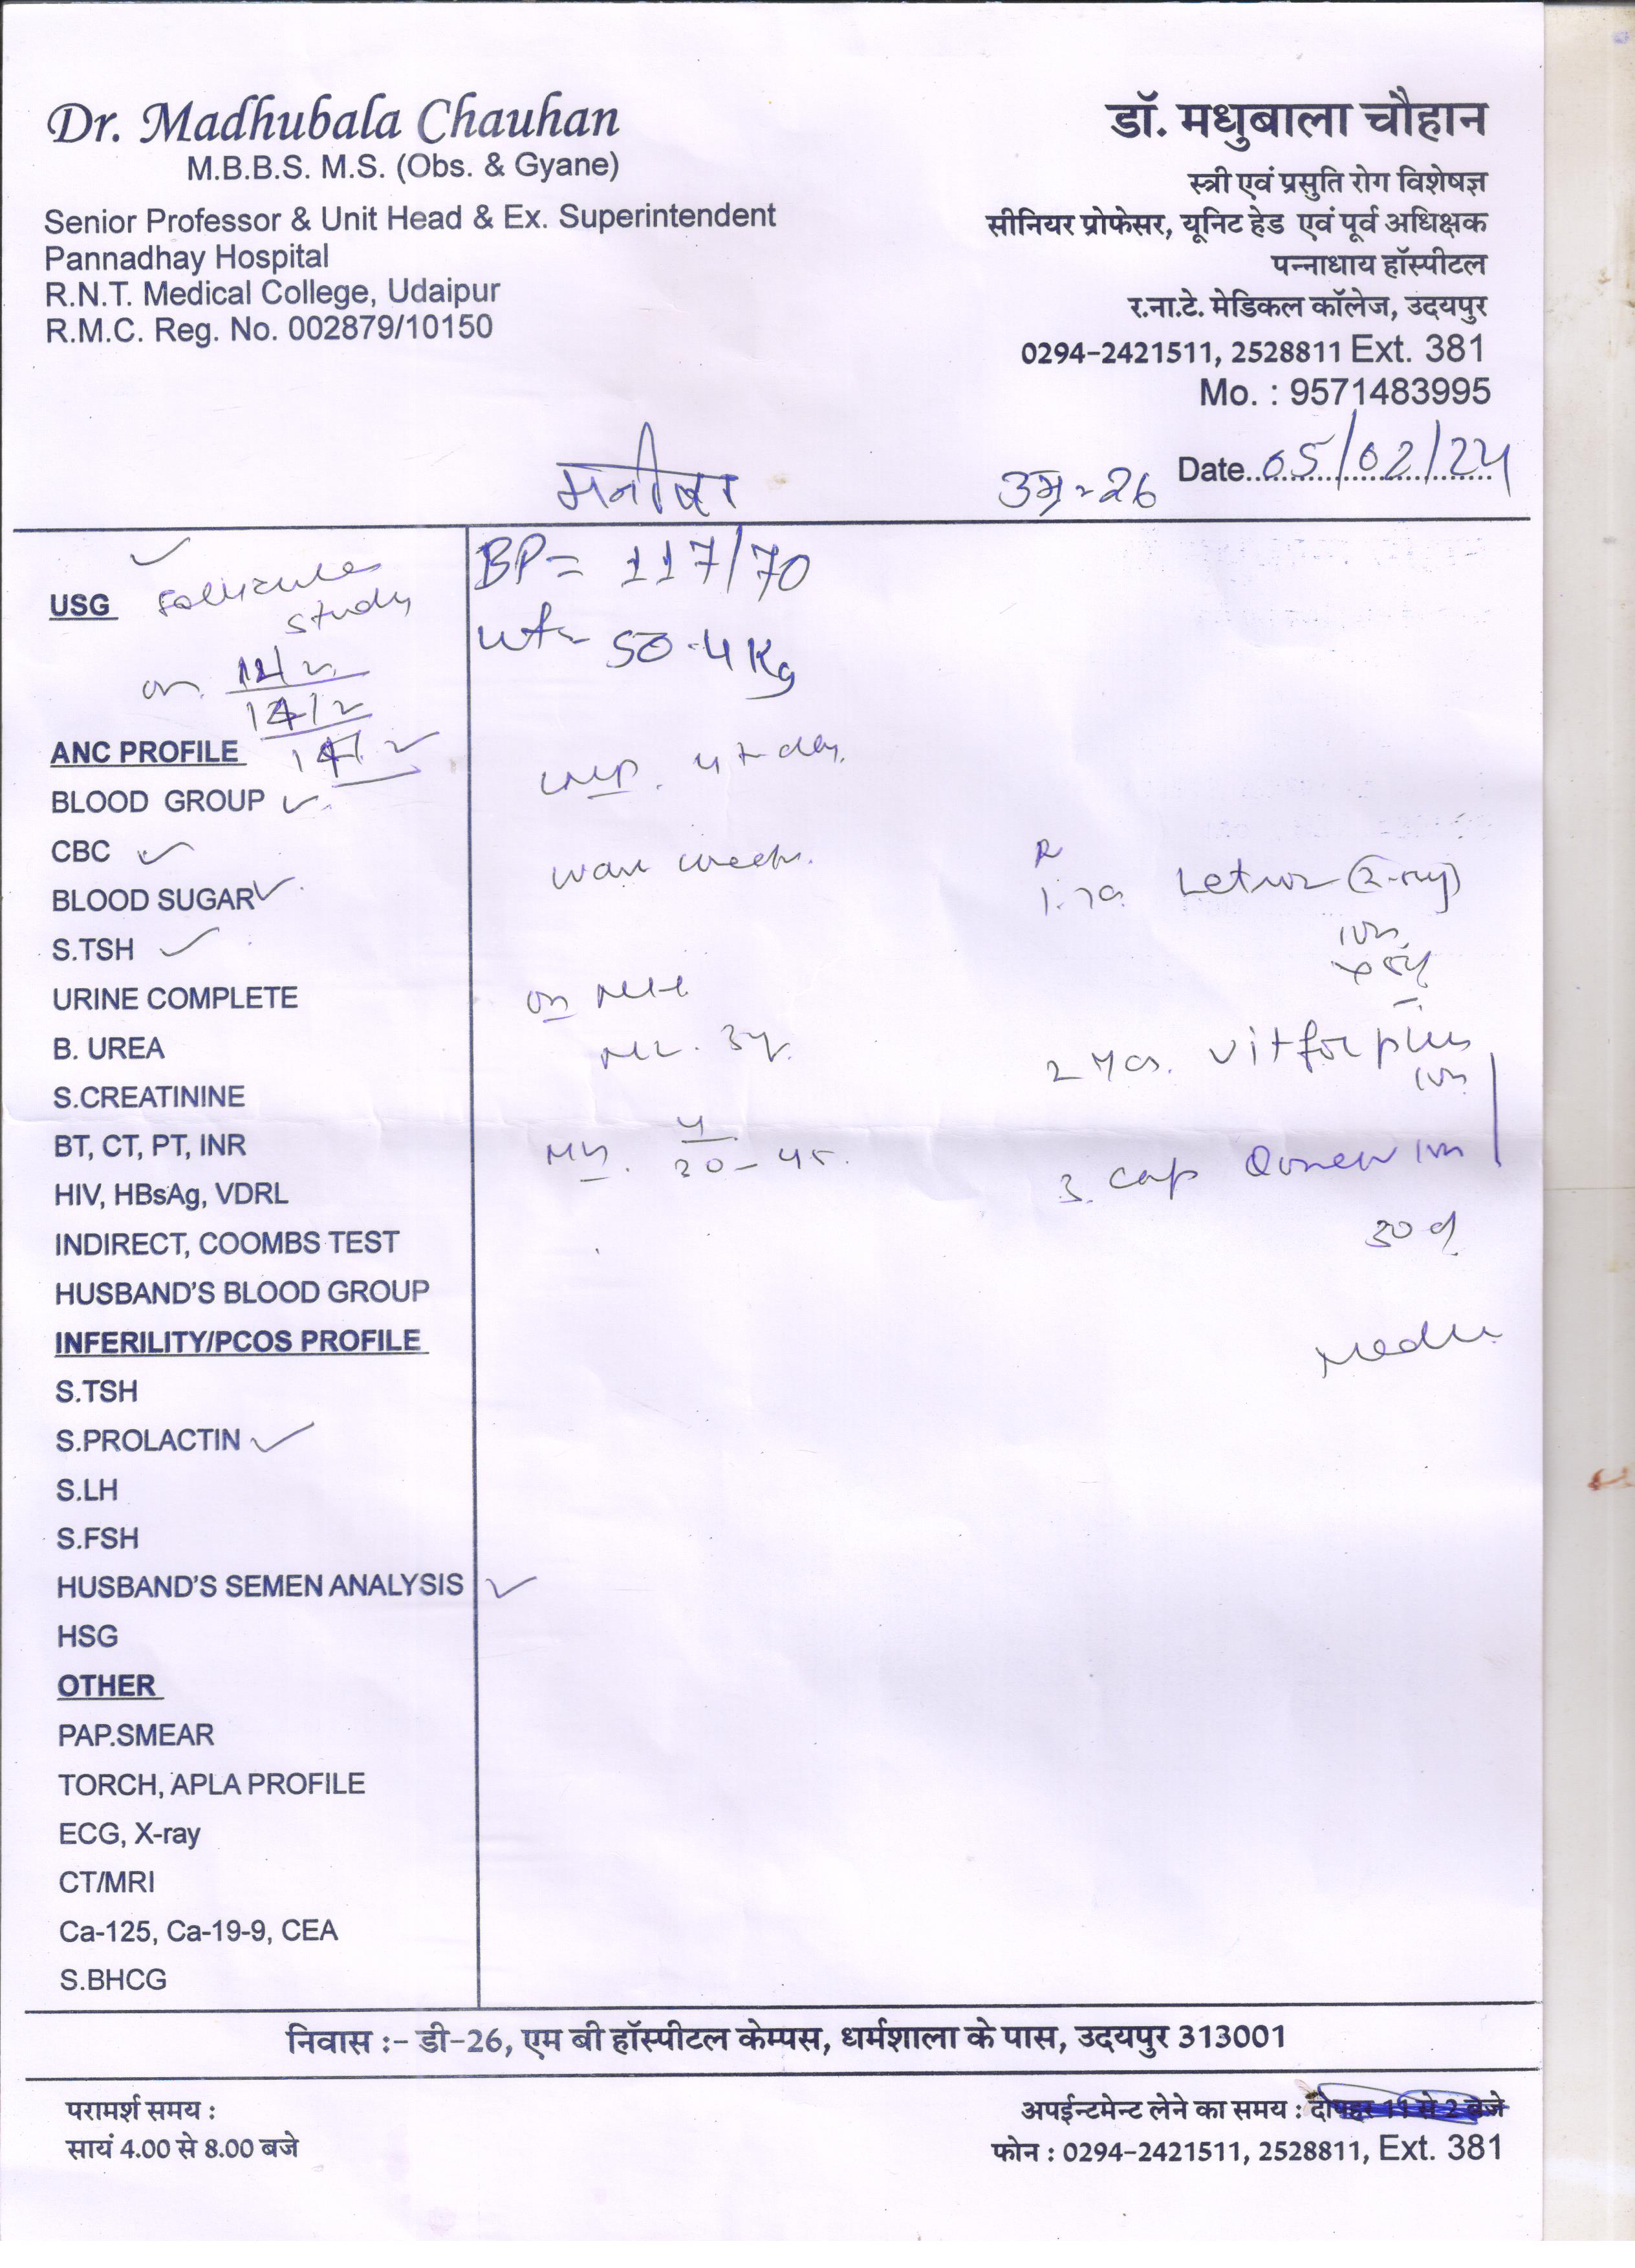 Dr. Madhubala Chauhan
M.B.B.S. M.S. (Obs. & Gyane)
Senior Professor & Unit Head & Ex. Superintendent
Pannadhay Hospital
R.N.T. Medical College, Udaipur
R.M.C. Reg. No. 002879/10150
डॉ. मधुबाला चौहान
स्त्री एवं प्रसुति रोग विशेषज्ञ
सीनियर प्रोफेसर, यूनिट हेड एवं पूर्व अधिक्षक
पन्नाधाय हॉस्पीटल
र.ना.टे. मेडिकल कॉलेज, उदयपुर
0294-2421511, 2528811 Ext. 381
Mo. : 9571483995
उम्र = 26
Date. 05/02/24
USG
study
on
14/2
ANC PROFILE
BLOOD GROUP ✓
CBC ✓
BLOOD SUGAR ✓
S.TSH ✓
URINE COMPLETE
B. UREA
S.CREATININE
BT, CT, PT, INR
HIV, HBsAg, VDRL
INDIRECT, COOMBS TEST
HUSBAND'S BLOOD GROUP
INFERILITY/PCOS PROFILE
S.TSH
S.PROLACTIN ✓
S.LH
S.FSH
HUSBAND'S SEMEN ANALYSIS ✓
HSG
OTHER
PAP.SMEAR
TORCH, APLA PROFILE
ECG, X-ray
CT/MRI
Ca-125, Ca-19-9, CEA
S.BHCG
BP = 117/70
wt = 50.4 Kg
LMP. 4th day.
R
1.
2
3. Cap
30 d
निवास :- डी-26, एम बी हॉस्पीटल केम्पस, धर्मशाला के पास, उदयपुर 313001
परामर्श समय :
सायं 4.00 से 8.00 बजे
अपईन्टमेन्ट लेने का समय : दोपहर 11 से 2 बजे
फोन : 0294-2421511, 2528811, Ext. 381